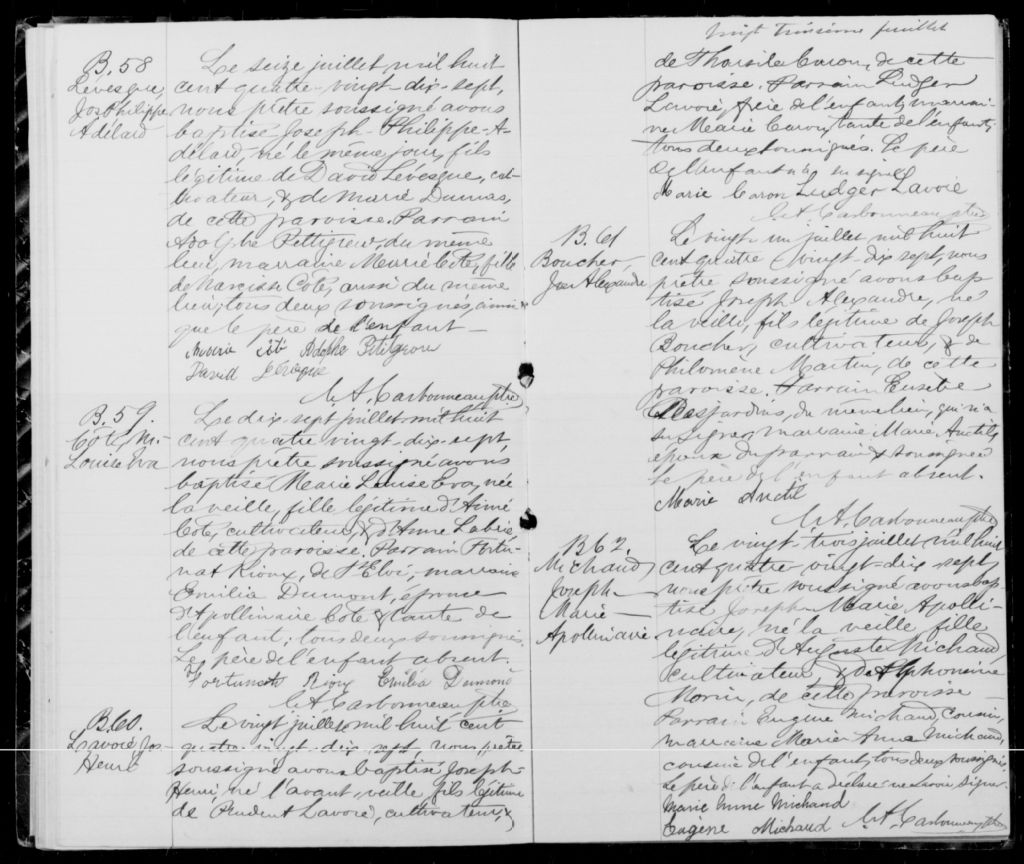 B. 58
Levesque,
Jos Philippe
Adélard
Le seize juillet mil huit
cent quatre-vingt-dix-sept,
nous prêtre soussigné avons
baptisé Joseph-Philippe-A-
délard, né le même jour, fils
légitime de David Levesque, cul-
tivateur, & de Marie Dumas,
de cette paroisse. Parrain
Adolphe Pettigrew, du même
lieu, marraine Marie Côté, fille
de Narcisse Côté, aussi du même
lieu, tous deux soussignés, ainsi
que le père de l'enfant —
Marie Côté Adolphe Petigrew
David Lévesque
M. A. Carbonneau ptre
B. 59.
Côté, M.-
Louise Eva
Le dix-sept juillet mil huit
cent quatre vingt-dix-sept,
nous prêtre soussigné avons
baptisé Marie Louise Eva, née
la veille, fille légitime d'Aimé
Côté, cultivateur, & d'Anne Labrie,
de cette paroisse. Parrain Fortu-
nat Rioux, de St Eloi, marraine
Emilia Dumont, épouse
d'Apollinaire Côté & tante de
l'enfant; tous deux soussignés.
Le père de l'enfant absent.
Fortunat Rioux Emilia Dumond
M. A. Carbonneau ptre
B. 60.
Lavoie, Jos-
Henri
Le vingt juillet mil huit cent
quatre-vingt-dix-sept, nous prêtre
soussigné avons baptisé Joseph-
Henri, né l'avant-veille, fils légitime
de Prudent Lavoie, cultivateur, &
Vingt troisième feuillet
de Thaïsile Caron, de cette
paroisse. Parrain Ludger
Lavoie, frère de l'enfant, marrai-
ne Marie Caron, tante de l'enfant,
tous deux soussignés. Le père
de l'enfant n'a su signer
Marie Caron Ludger Lavoie
M. A. Carbonneau ptre
B. 61
Boucher,
Jos Alexandre
Le vingt-un juillet, mil huit
cent quatre-vingt-dix sept, nous
prêtre soussigné avons bap-
tisé Joseph Alexandre, né
la veille, fils légitime de Joseph
Boucher, cultivateur, & de
Philomène Martin, de cette
paroisse. Parrain Eusèbe
Desjardins, du même lieu, qui n'a
su signer, marraine Marie Anctil,
épouse du parrain & soussignée
le père de l'enfant absent.
Marie Anctil
M. A. Carbonneau ptre
B 62.
Michaud
Joseph-
Marie-
Apollinaire
Le vingt-trois juillet, mil huit
cent quatre-vingt-dix-sept,
nous prêtre soussigné avons bap-
tisé Joseph-Marie Apolli-
naire, né la veille, fille
légitime d'Auguste Michaud
cultivateur, & d'Alphonsine
Morin, de cette paroisse —
Parrain Eugène Michaud, cousin,
marraine Marie Anna Michaud,
cousine de l'enfant, tous deux soussignés.
Le père de l'enfant a déclaré ne savoir signer.
Marie Anne Michaud
Eugène Michaud M. A. Carbonneau ptre